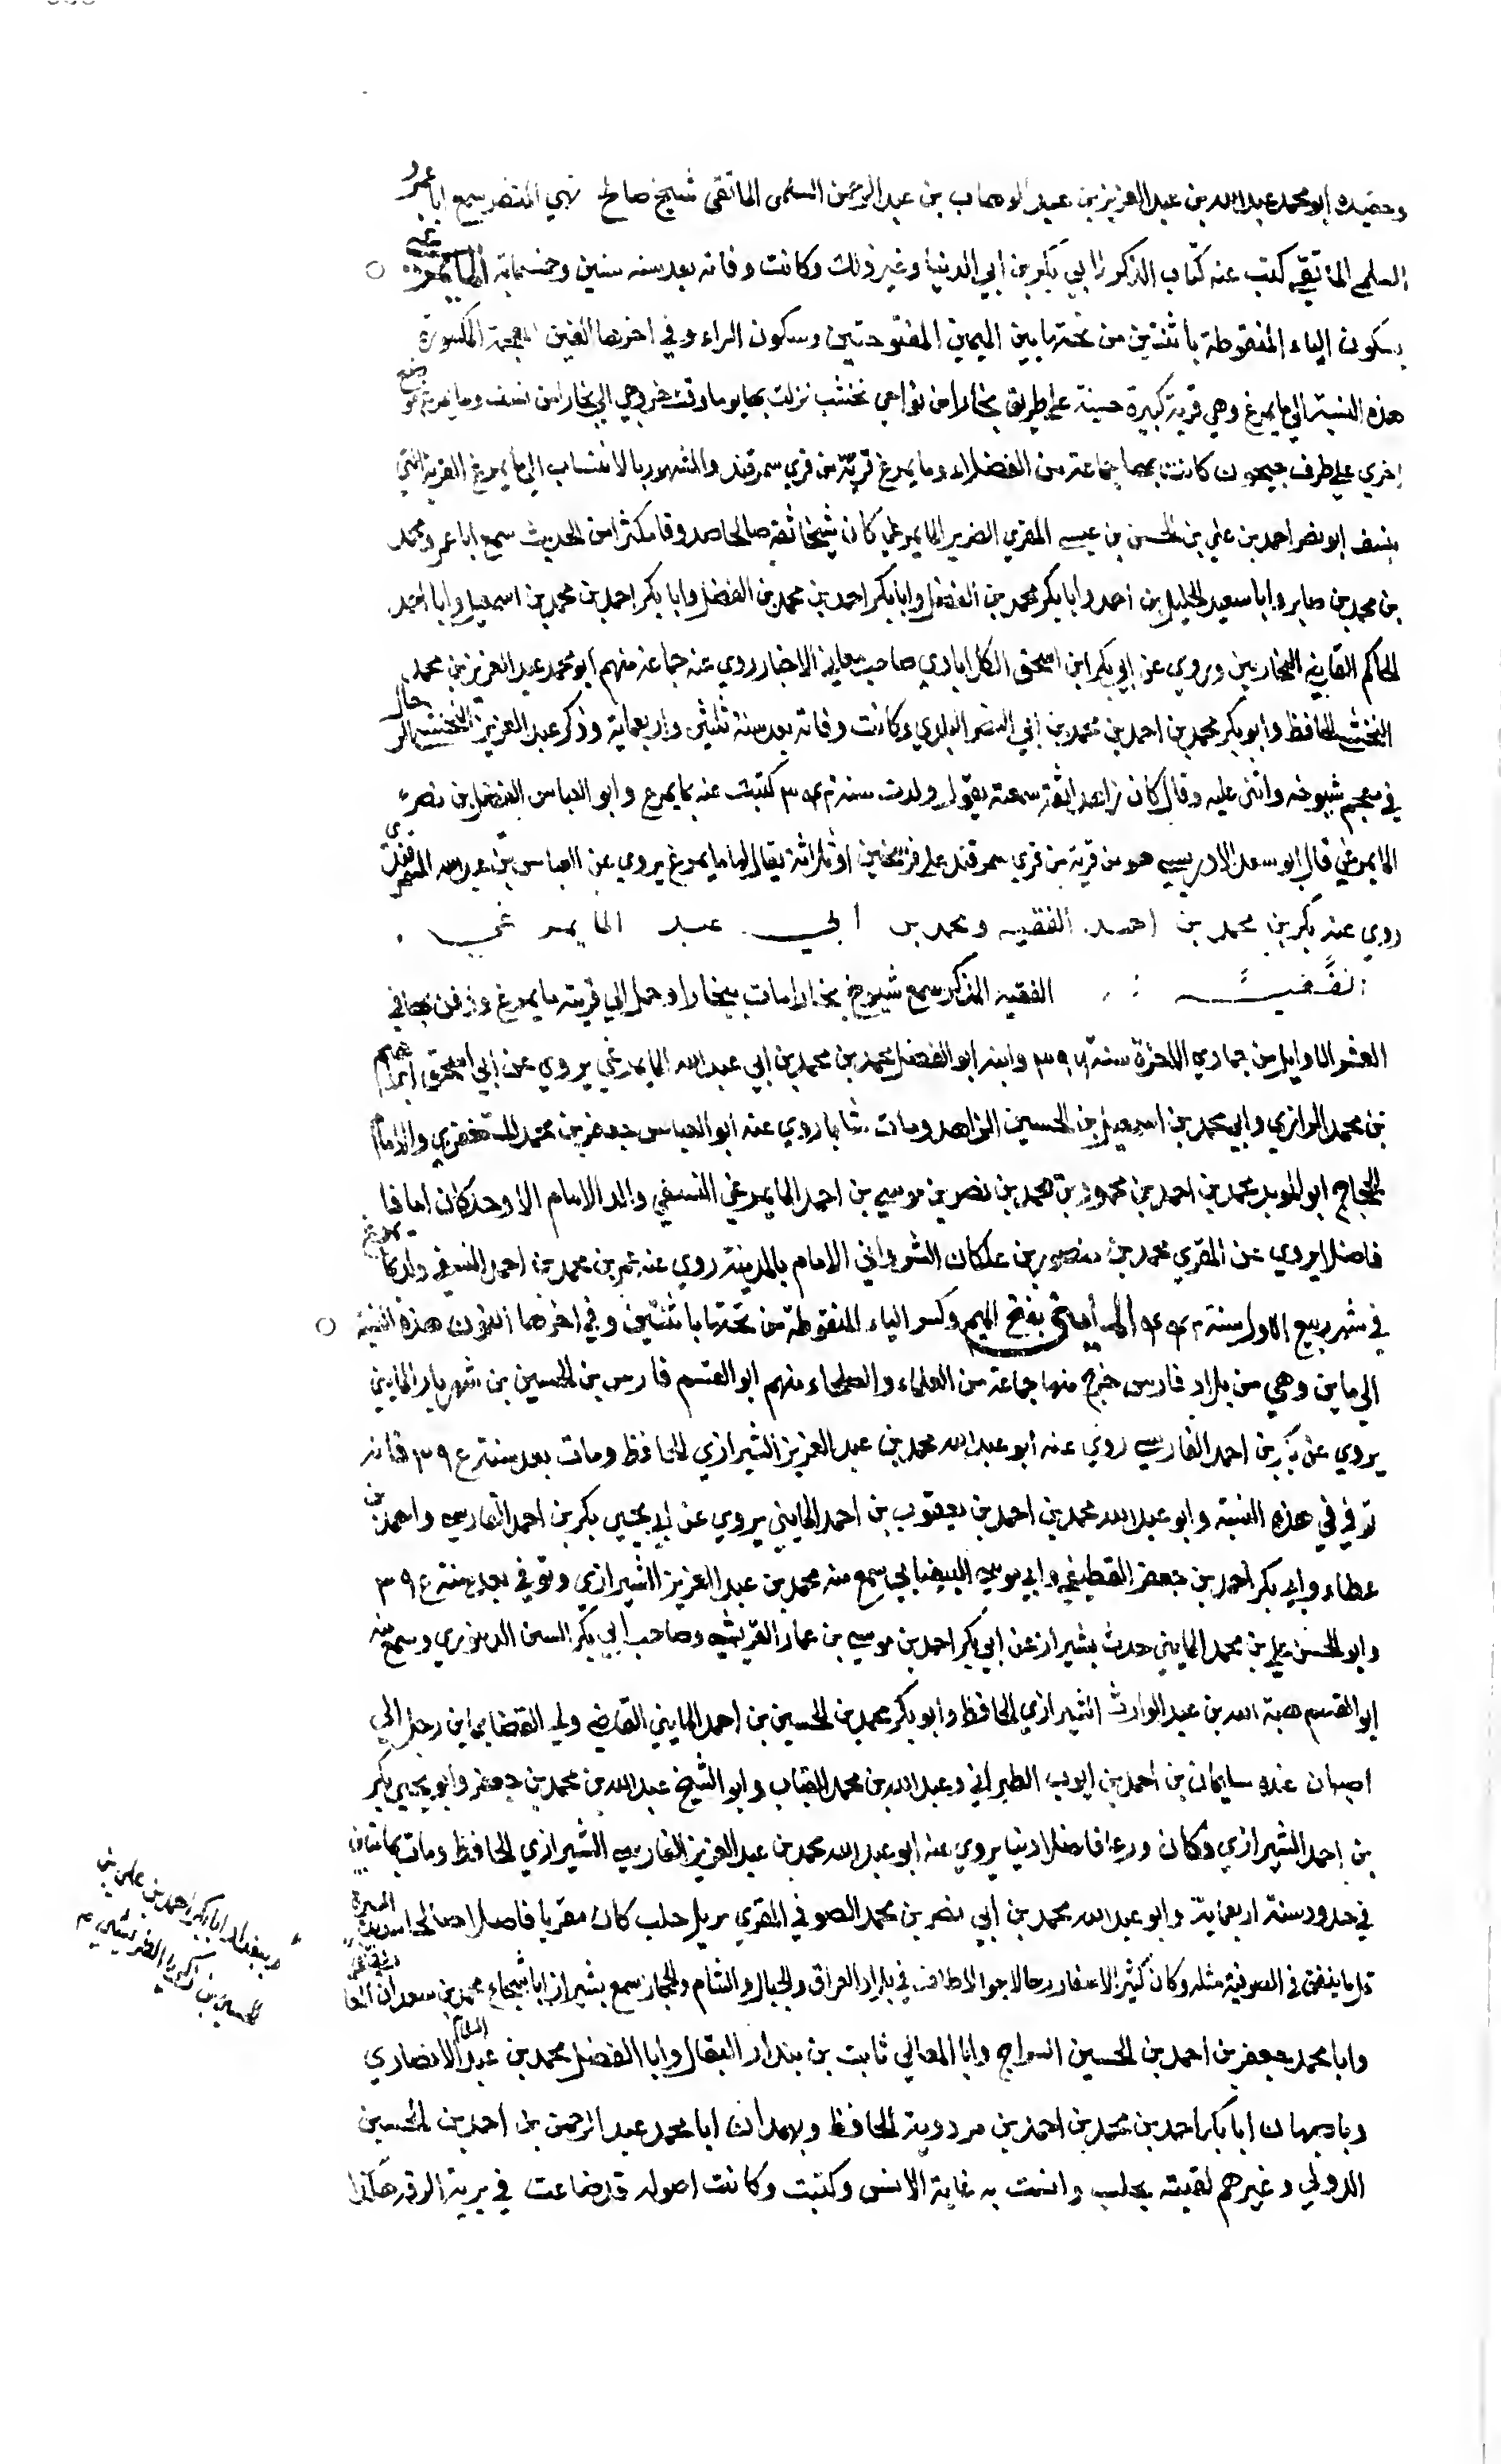 وحفيده ابو محمد عبد الله بن عبد العزيز بن عبد الوهاب بن عبد الرحمن السلمى الماتقى شيخ صالح سمع ابا عمرو
السلمي الماتقي كتب عنه كتاب الذكر لابي بكر بن ابي الدنيا وغير ذلك وكانت وفاته بعد سنه ستين وخمسماية المايمرغي
بسكون الياء المنقوطة باثنتين من تحتها بين الميمين المفتوحتين وسكون الراء وفي اخرها الغين المعجمة المكسورة
هذه النسبة الي مايمرغ وهي قرية كبيرة حسنة علي طريق بخارا من نواحي نخشب نزلت بها يوما وقت خروجي الي بخارا من نسف ومايمرغ موضع
اخري علي طرف جيحون كانت بها جماعة من الفضلاء ومايمرغ قرية من قري سمرقند والمشهور بالانتساب الي مايمرغ القرية التي
بنسف ابو نصر احمد بن علي بن الحسن بن عيسي المقري الضرير المايمرغي كان شيخا ثقة صالحا صدوقا مكثرا من الحديث سمع ابا عمرو محمد
بن محمد بن صابر وابا سعيد الخليل بن احمد وابا بكر محمد بن الفضل وابا بكر احمد بن محمد بن الفضل وابا بكر احمد بن محمد بن اسمعيل وابا احمد
الحاكم البخاريين ويروي عن ابي بكر ابن اسحق الكلاباذي صاحب معاني الاخبار روي عنه جماعة منهم ابو محمد عبد العزيز بن محمد
النخشبي الحافظ وابو بكر محمد بن احمد بن محمد بن ابي النضر البلدي وكانت وفاته بعد سنة ثلثين واربعماية وذكر عبد العزيز النخشبي الرحال
في معجم شيوخه واثنى عليه وقال كان زاهدا ثقة سمعته يقول ولدت سنة كتبت عنه بمايمرغ وابو العباس الفضل بن نصر
المايمرغي قال ابو سعد الادريسي هو من قرية من قري سمرقند علي فرسخين او ثلاثة يقال لها مايمرغ يروي عن العباس بن عبد الله السمرقندي
روي عنه بكر بن محمد بن احمد الفقيه ومحمد بن ابي عبد المايمرغي
الفقيه المذكر سمع شيوخ بخارا مات ببخارا وحمل الي قريته مايمرغ ودفن بها في
العشر الاوايل من جمادي الاخرة سنة وابنه ابو الفضل محمد بن محمد بن ابي عبد الله المايمرغي يروي عن ابي اسحق ابراهيم
بن محمد الرازي وابي محمد بن اسمعيل بن الحسين الزاهد ومات شابا روي عنه ابو العباس جعفر بن محمد المستغفري والامام
الحجاج ابو المويد محمد بن احمد بن محمود بن محمد بن نصر بن موسي بن احمد المايمرغي النسفي والد الامام الاوحد كان اماما
فاضلا يروي عن المقري محمد بن منصور بن علكان الشرواني الامام بالمدينة روي عنه عمر بن محمد بن احمد النسفي ولد بمايمرغ
في شهر ربيع الاول سنة المايني بفتح الميم وكسر الياء المنقوطة من تحتها باثنتين وفي اخرها النون هذه النسبة
الي ماين وهي من بلاد فارس خرج منها جماعة من العلماء والصلحاء منهم ابو القسم فارس بن الحسين بن شهريار المايني
يروي عن بكر بن احمد الفارسي روي عنه ابو عبد الله محمد بن عبد العزيز الشيرازي الحافظ ومات بعد سنة ٣٩٤ فانه
توفي في هذه السنة وابو عبد الله محمد بن احمد بن يعقوب بن احمد المايني يروي عن ابي يحيى بكر بن احمد الفارسي واحمد بن
عطاء وابي بكر احمد بن جعفر القطيعي وابي موسي البيضايي سمع منه محمد بن عبد العزيز الشيرازي وتوفي بعد سنة ٣٩٤
وابو الحسن علي بن محمد المايني حدث بشيراز عن ابي بكر احمد بن موسي بن عمار القرشي وصاحب ابي بكر السني الدينوري وسمع منه
ابو القسم هبة الله بن عبد الوارث الشيرازي الحافظ وابو بكر محمد بن الحسين بن احمد المايني القاضي ولي القضا بماين رحل الي
اصبهان عنده سليمان بن احمد بن ايوب الطبراني وعبد الله بن محمد القباب وابو الشيخ عبد الله بن محمد بن جعفر وابو يحيى بكر
بن احمد الشيرازي وكان ورعا فاضلا دينا يروي عنه ابو عبد الله محمد بن عبد العزيز الفارسي الشيرازي الحافظ ومات
في حدود سنة اربعماية وابو عبد الله محمد بن ابي نصر بن محمد الصوفي المقري نزيل حلب كان مقريا فاضلا السيرة
قل ما يتفق في الصوفية مثله وكان كثير الاسفار رحالا جوالا طاف في بلاد العراق والجبال والشام والحجاز سمع بشيراز ابا شجاع محمد بن سعدان
وابا محمد جعفر بن احمد بن الحسين السراج وابا المعالي ثابت بن بندار البقال وابا الفضل محمد بن عبد السلام الانصاري
وباصبهان ابا بكر احمد بن محمد بن احمد بن مردوية الحافظ وبهمدان ابا محمد عبد الرحمن بن احمد بن الحسين
الدوني وغيرهم لقيته بحلب وانست به غاية الانس وكتبت وكانت اصوله قد ضاعت في برية الرقة هكذا
وببغداد ابا بكر احمد بن علي بن
الحسين بن زكريا الطريثيثي